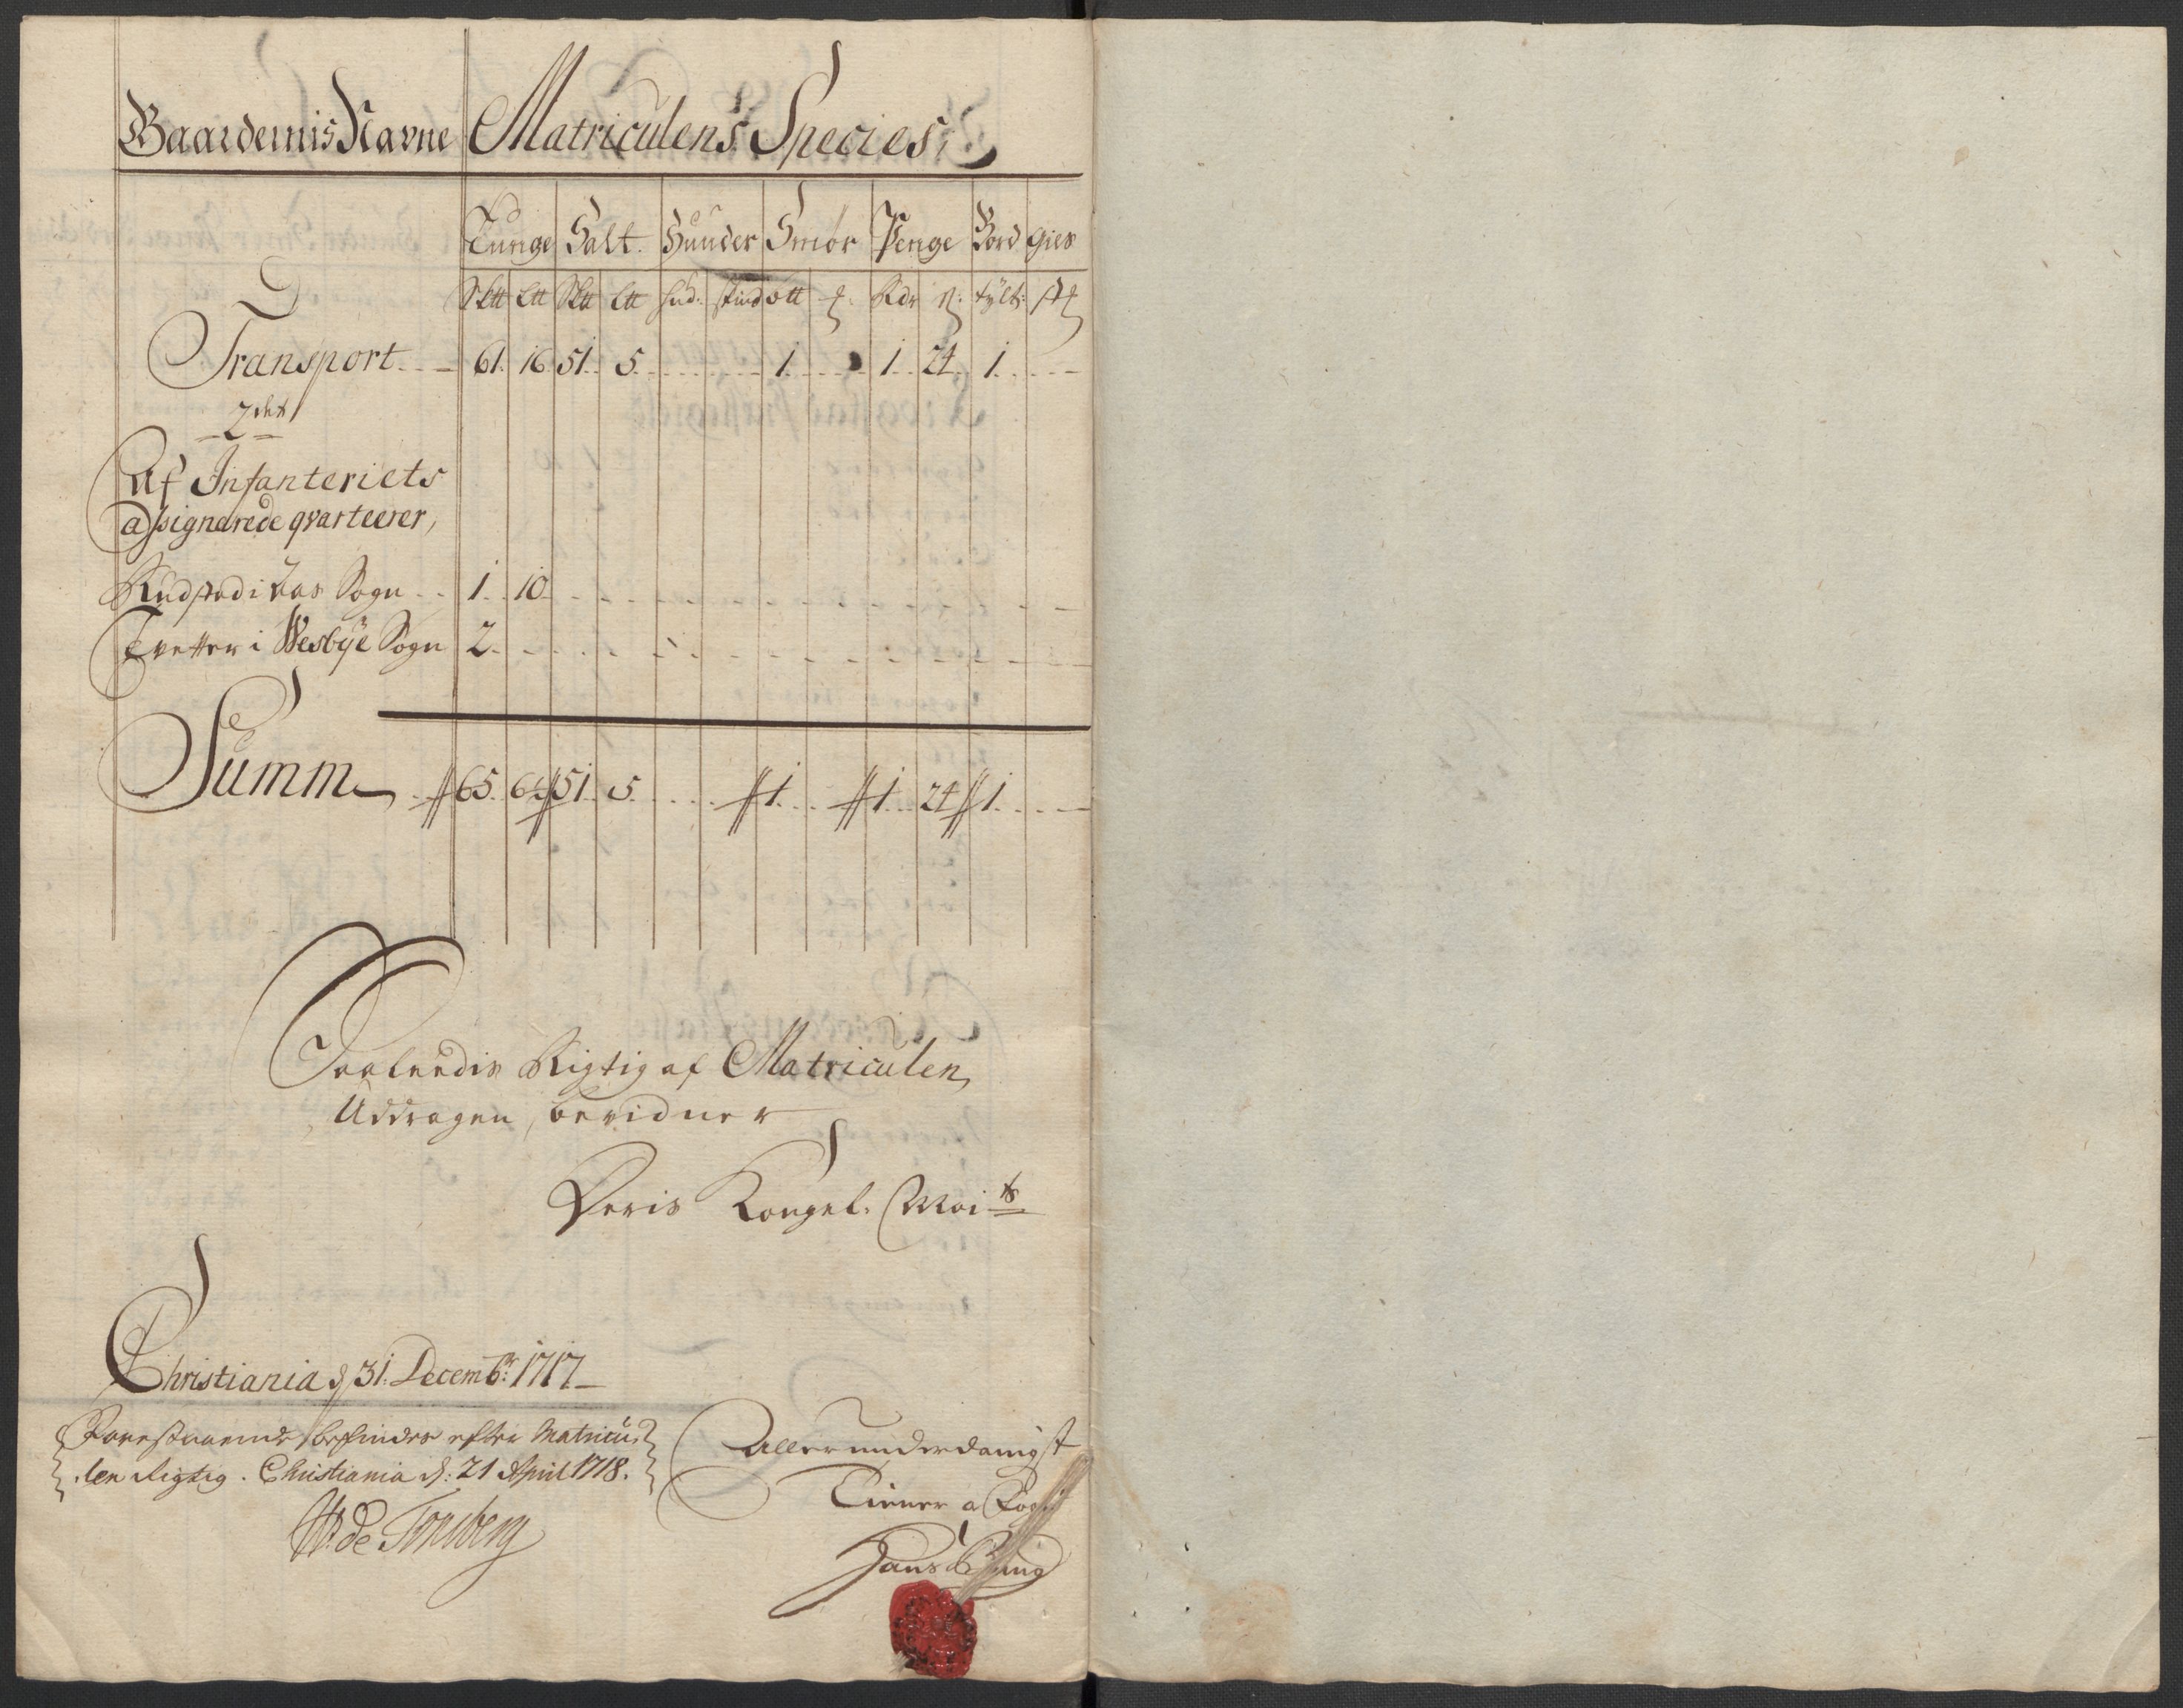 Gaardernis Navne Matriculens Species,
Tunge Salt. Huuder Smør Penge Bord Gies
Sktt Ltt Sktt Ltt hud: ott Rdr ß: tylt:
Transport 61. 16 51. 5. 1. 1. 24. 1.
2det
Af Infanteriets
assignerede qvarteerer,
Rudstad i Aas Sogn 1. 10
Tvetter i Wesbye Sogn 2.
Summ 65. 6 51. 5. 1. 1. 24 1.
Saaledis Rigtig af Matriculen
Uddragen, bevidner
Deris Kongel: Mai ts
Christiania d 31. Decembr: 1717
Forestaaende befindes efter Matricu-
len Rigtig. Christiania d: 21 April 1718.
W: de Tonsberg
Allerunderdanigst
Tiener
Hans